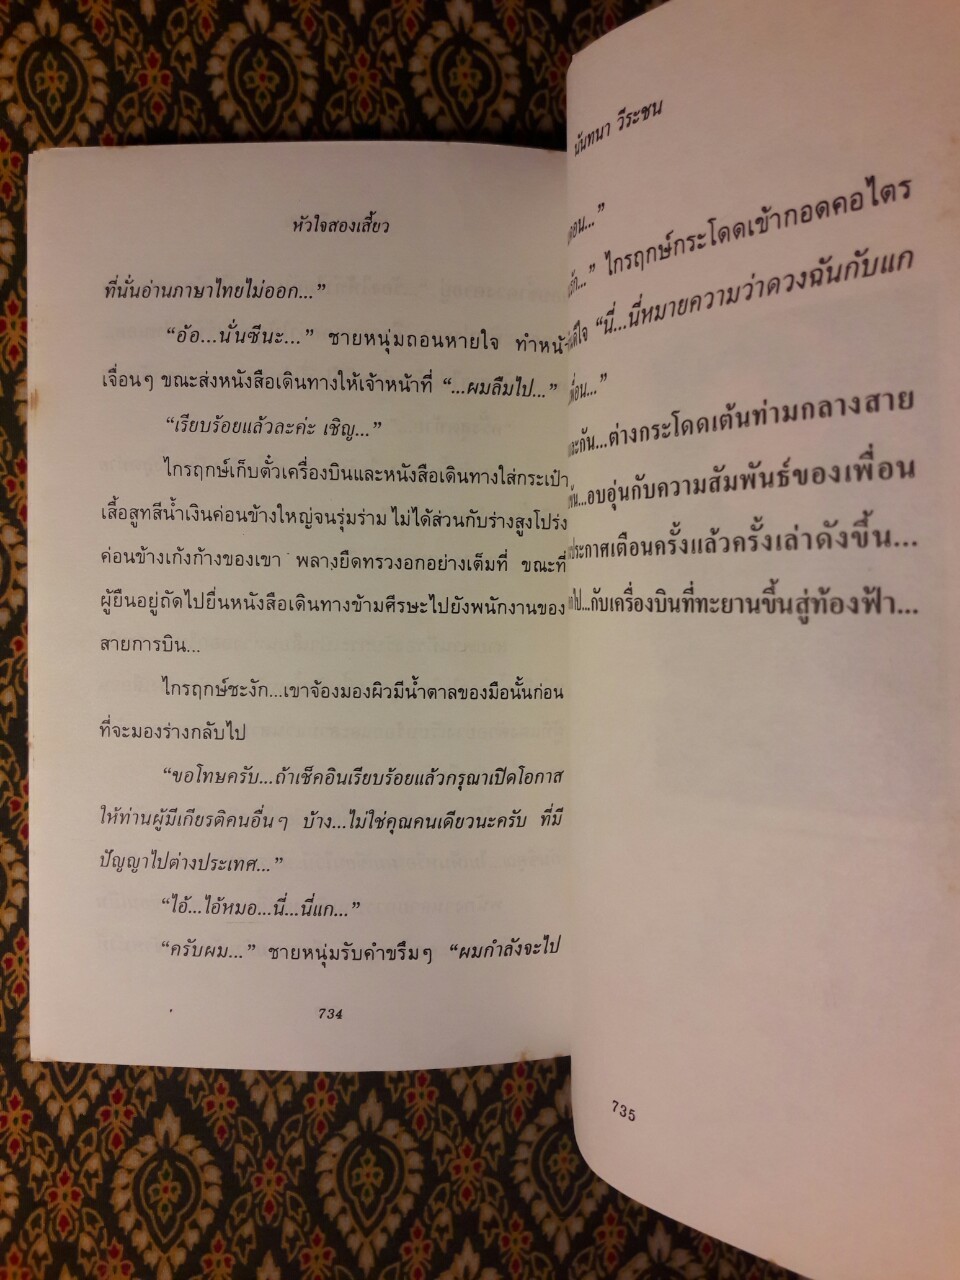 หัวใจสองเสี้ยว
ที่นั่นอ่านภาษาไทยไม่ออก...”
“อ้อ...นั่นซีนะ...” ชายหนุ่มถอนหายใจ ทำหน้า
เจื่อนๆ ขณะส่งหนังสือเดินทางให้เจ้าหน้าที่ “...ผมลืมไป...”
“เรียบร้อยแล้วละค่ะ เชิญ...”
ไกรฤกษ์เก็บตั๋วเครื่องบินและหนังสือเดินทางใส่กระเป๋า
เสื้อสูทสีน้ำเงินค่อนข้างใหญ่จนรุ่มร่าม ไม่ได้ส่วนกับร่างสูงโปร่ง
ค่อนข้างเก้งก้างของเขา พลางยืดทรวงอกอย่างเต็มที่ ขณะที่
ผู้ยืนอยู่ถัดไปยื่นหนังสือเดินทางข้ามศีรษะไปยังพนักงานของ
สายการบิน...
ไกรฤกษ์ชะงัก...เขาจ้องมองผิวมีน้ำตาลของมือนั้นก่อน
ที่จะมองร่างกลับไป
“ขอโทษครับ...ถ้าเช็คอินเรียบร้อยแล้วกรุณาเปิดโอกาส
ให้ท่านผู้มีเกียรติคนอื่นๆ บ้าง...ไม่ใช่คุณคนเดียวนะครับ ที่มี
ปัญญาไปต่างประเทศ...”
“ไอ้...ไอ้หมอ...นี่...นี่แก...”
“ครับผม...” ชายหนุ่มรับคำขรึมๆ “ผมกำลังจะไป
734
นันทนา วีระชน
...”
...” ไกรฤกษ์กระโดดเข้ากอดคอไตร
“นี่...นี่หมายความว่าดวงฉันกับแก
...”
...ต่างกระโดดเต้นท่ามกลางสาย
...อบอุ่นกับความสัมพันธ์ของเพื่อน
ประกาศเตือนครั้งแล้วครั้งเล่าดังขึ้น...
...กับเครื่องบินที่ทะยานขึ้นสู่ท้องฟ้า...
735